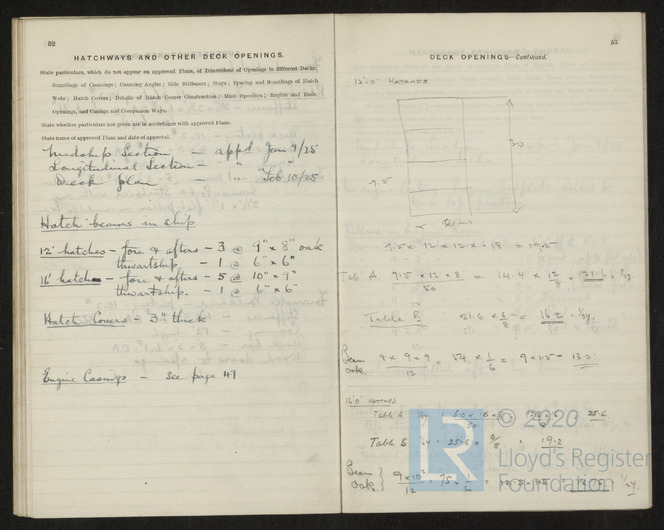 52
HATCHWAYS AND OTHER DECK OPENINGS.
State particulars, which do not appear on approved Plans, of Dimensions of Openings in different Decks;
Scantlings of Coamings; Coaming Angles; Side Stiffeners; Stays; Spacing and Scantlings of Hatch
Webs; Hatch Covers; Details of Hatch Corner Construction; Mast Openings; Engine and Boiler
Openings, and Casings and Companion Ways.
State whether particulars not given are in accordance with approved Plans.
State names of approved Plans and date of approval.
Midship Section - appd Jan 9/25
Longitudinal Section - " "
Deck plan - " Feb 10/25
Hatch beams in ship
12' hatches - fore & afters - 3 @ 9" x 8" oak
thwartship - 1 @ 6" x 6"
16' hatches - fore & afters - 5 @ 10" x 9"
thwartship. - 1 @ 6" x 6"
Hatch Covers - 3" thick
Engine Casings - See page 49
53
DECK OPENINGS—Continued.
12'.0" HATCHES
30
9.5
Tab A. 9.5 x 12 x 8 = 14.4 x 12/8 = 21.6
50
Table B 21.6 x 6/8 = 16.2
Beam Oak. 8 x 9 x 9 = 54 x 1/6 = 9 x 1.5 =
12
16'.0" HATCHES
Table A 25.6
Table B 25.6 x 6/8 = 19.2
Beam Oak. 9 x 10²
12
© 2020
Lloyd's Register
Foundation
LR